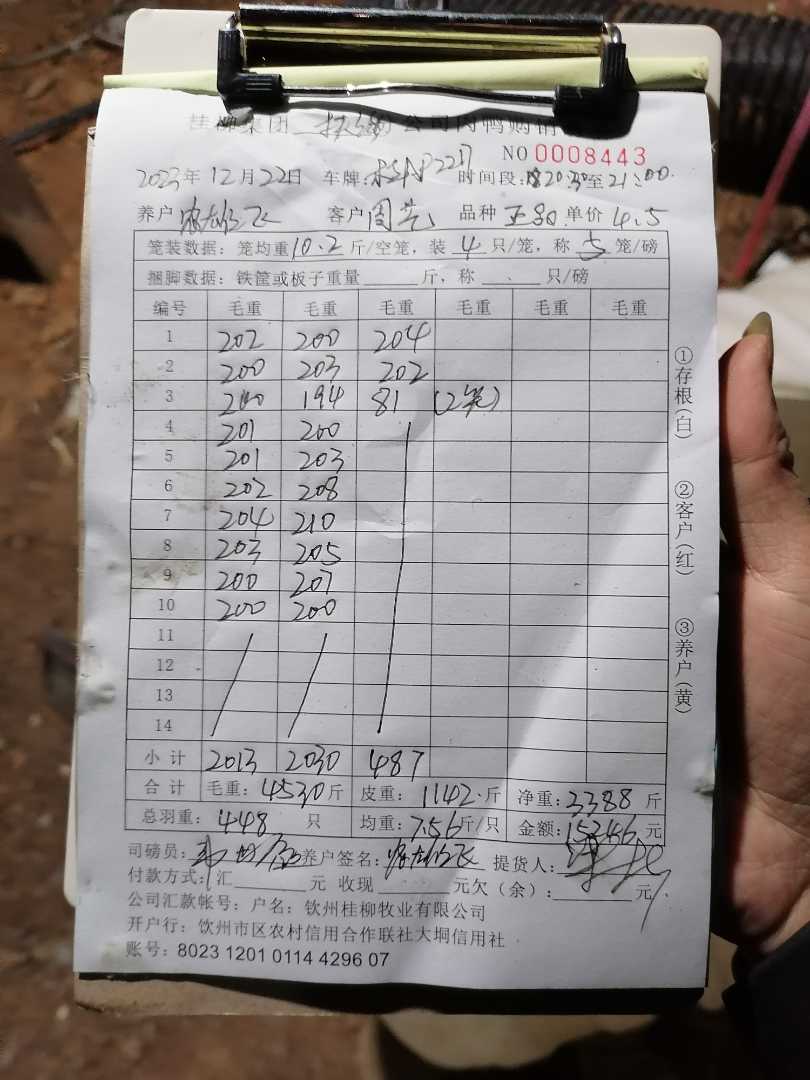 桂柳集团 公司肉鸭购销
NO 0008443
2023年12月22日 车牌: 时间段: 20:30至21:00
养户 飞 客户 周 品种 单价 4.5
笼装数据: 笼均重 10.2 斤/空笼, 装 4 只/笼, 称 5 笼/磅
捆脚数据: 铁筐或板子重量 斤, 称 只/磅
编号 毛重 毛重 毛重 毛重 毛重 毛重
1 202 200 204
2 200 203 202
3 200 194 81 (2笼)
4 201 200
5 201 203
6 202 208
7 204 210
8 203 205
9 200 207
10 200 200
11
12
13
14
小计 2013 2030 487
合计 毛重: 4530斤 皮重: 1142斤 净重: 3388斤
总羽重: 448 只 均重: 7.56斤/只 金额: 15246元
司磅员: 养户签名: 飞 提货人:
付款方式: 汇 元 收现 元欠(余): 元
公司汇款帐号: 户名: 钦州桂柳牧业有限公司
开户行: 饮州市区农村信用合作联社大垌信用社
账号: 8023 1201 0114 4296 07
①存根(白)
②客户(红)
③养户(黄)